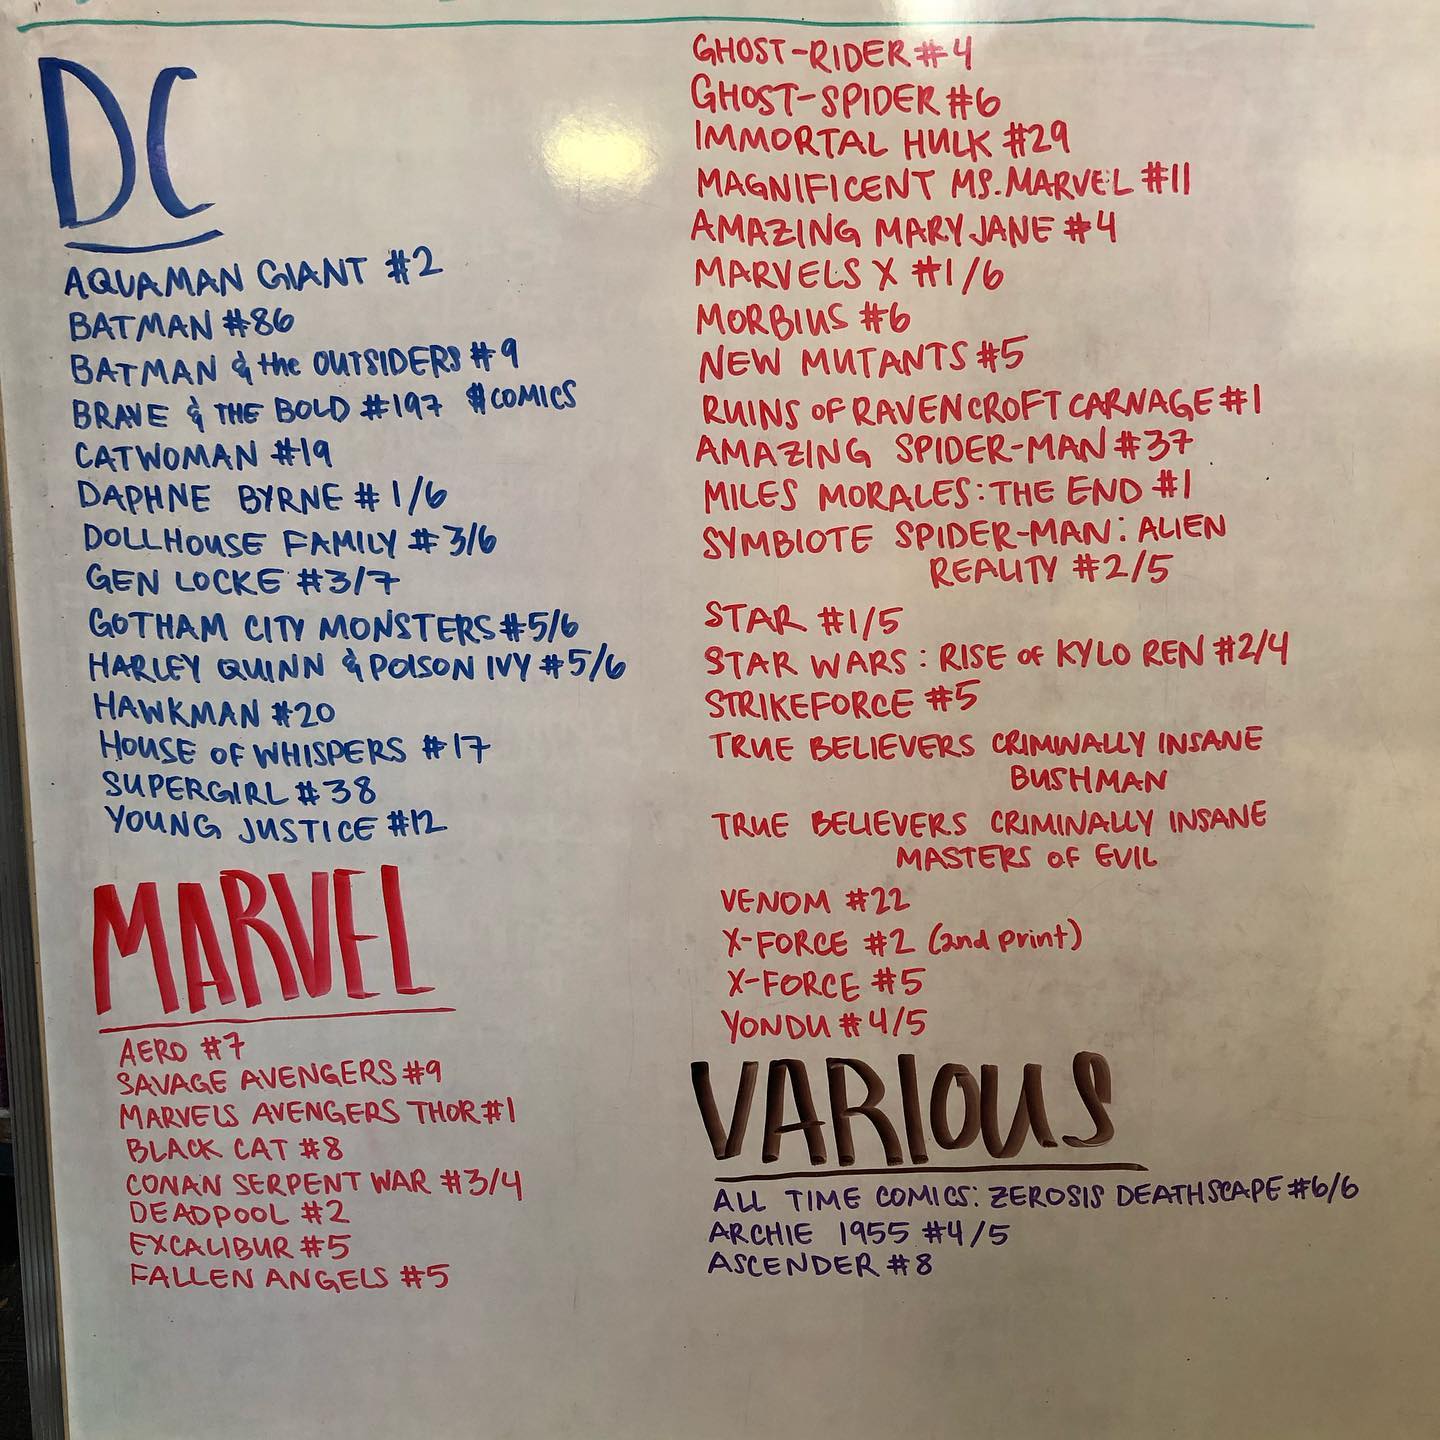 DC
AQUAMAN GIANT #2
BATMAN #86
BATMAN & the OUTSIDERS #9
BRAVE & THE BOLD #197 $COMICS
CATWOMAN #19
DAPHNE BYRNE #1/6
DOLLHOUSE FAMILY #3/6
GEN LOCKE #3/7
GOTHAM CITY MONSTERS #5/6
HARLEY QUINN & POISON IVY #5/6
HAWKMAN #20
HOUSE OF WHISPERS #17
SUPERGIRL #38
YOUNG JUSTICE #12
MARVEL
AERO #7
SAVAGE AVENGERS #9
MARVELS AVENGERS THOR #1
BLACK CAT #8
CONAN SERPENT WAR #3/4
DEADPOOL #2
EXCALIBUR #5
FALLEN ANGELS #5
GHOST-RIDER #4
GHOST-SPIDER #6
IMMORTAL HULK #29
MAGNIFICENT MS. MARVEL #11
AMAZING MARY JANE #4
MARVELS X #1/6
MORBIUS #6
NEW MUTANTS #5
RUINS OF RAVENCROFT CARNAGE #1
AMAZING SPIDER-MAN #37
MILES MORALES: THE END #1
SYMBIOTE SPIDER-MAN: ALIEN
REALITY #2/5
STAR #1/5
STAR WARS: RISE OF KYLO REN #2/4
STRIKEFORCE #5
TRUE BELIEVERS CRIMINALLY INSANE
BUSHMAN
TRUE BELIEVERS CRIMINALLY INSANE
MASTERS OF EVIL
VENOM #22
X-FORCE #2 (2nd print)
X-FORCE #5
YONDU #4/5
VARIOUS
ALL TIME COMICS: ZEROSIS DEATHSCAPE #6/6
ARCHIE 1955 #4/5
ASCENDER #8